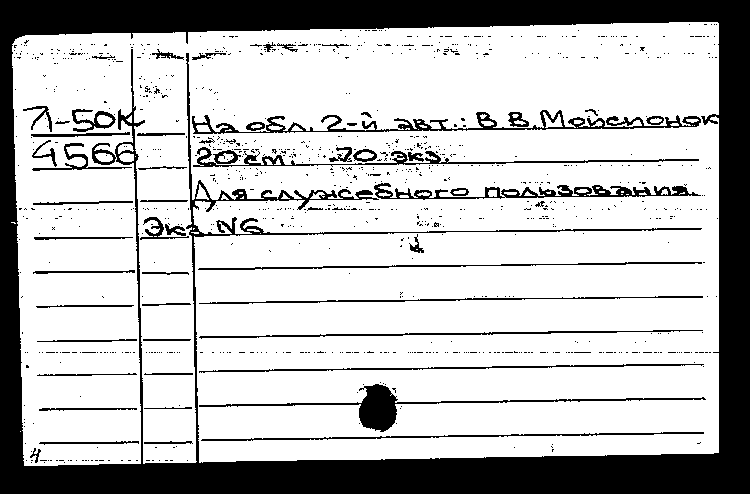 Л-50К На обл. 2-й авт.: В В. Мойсионок
4566 20 см. 70 экз.
Для служебного пользования.
Экз. №6
4